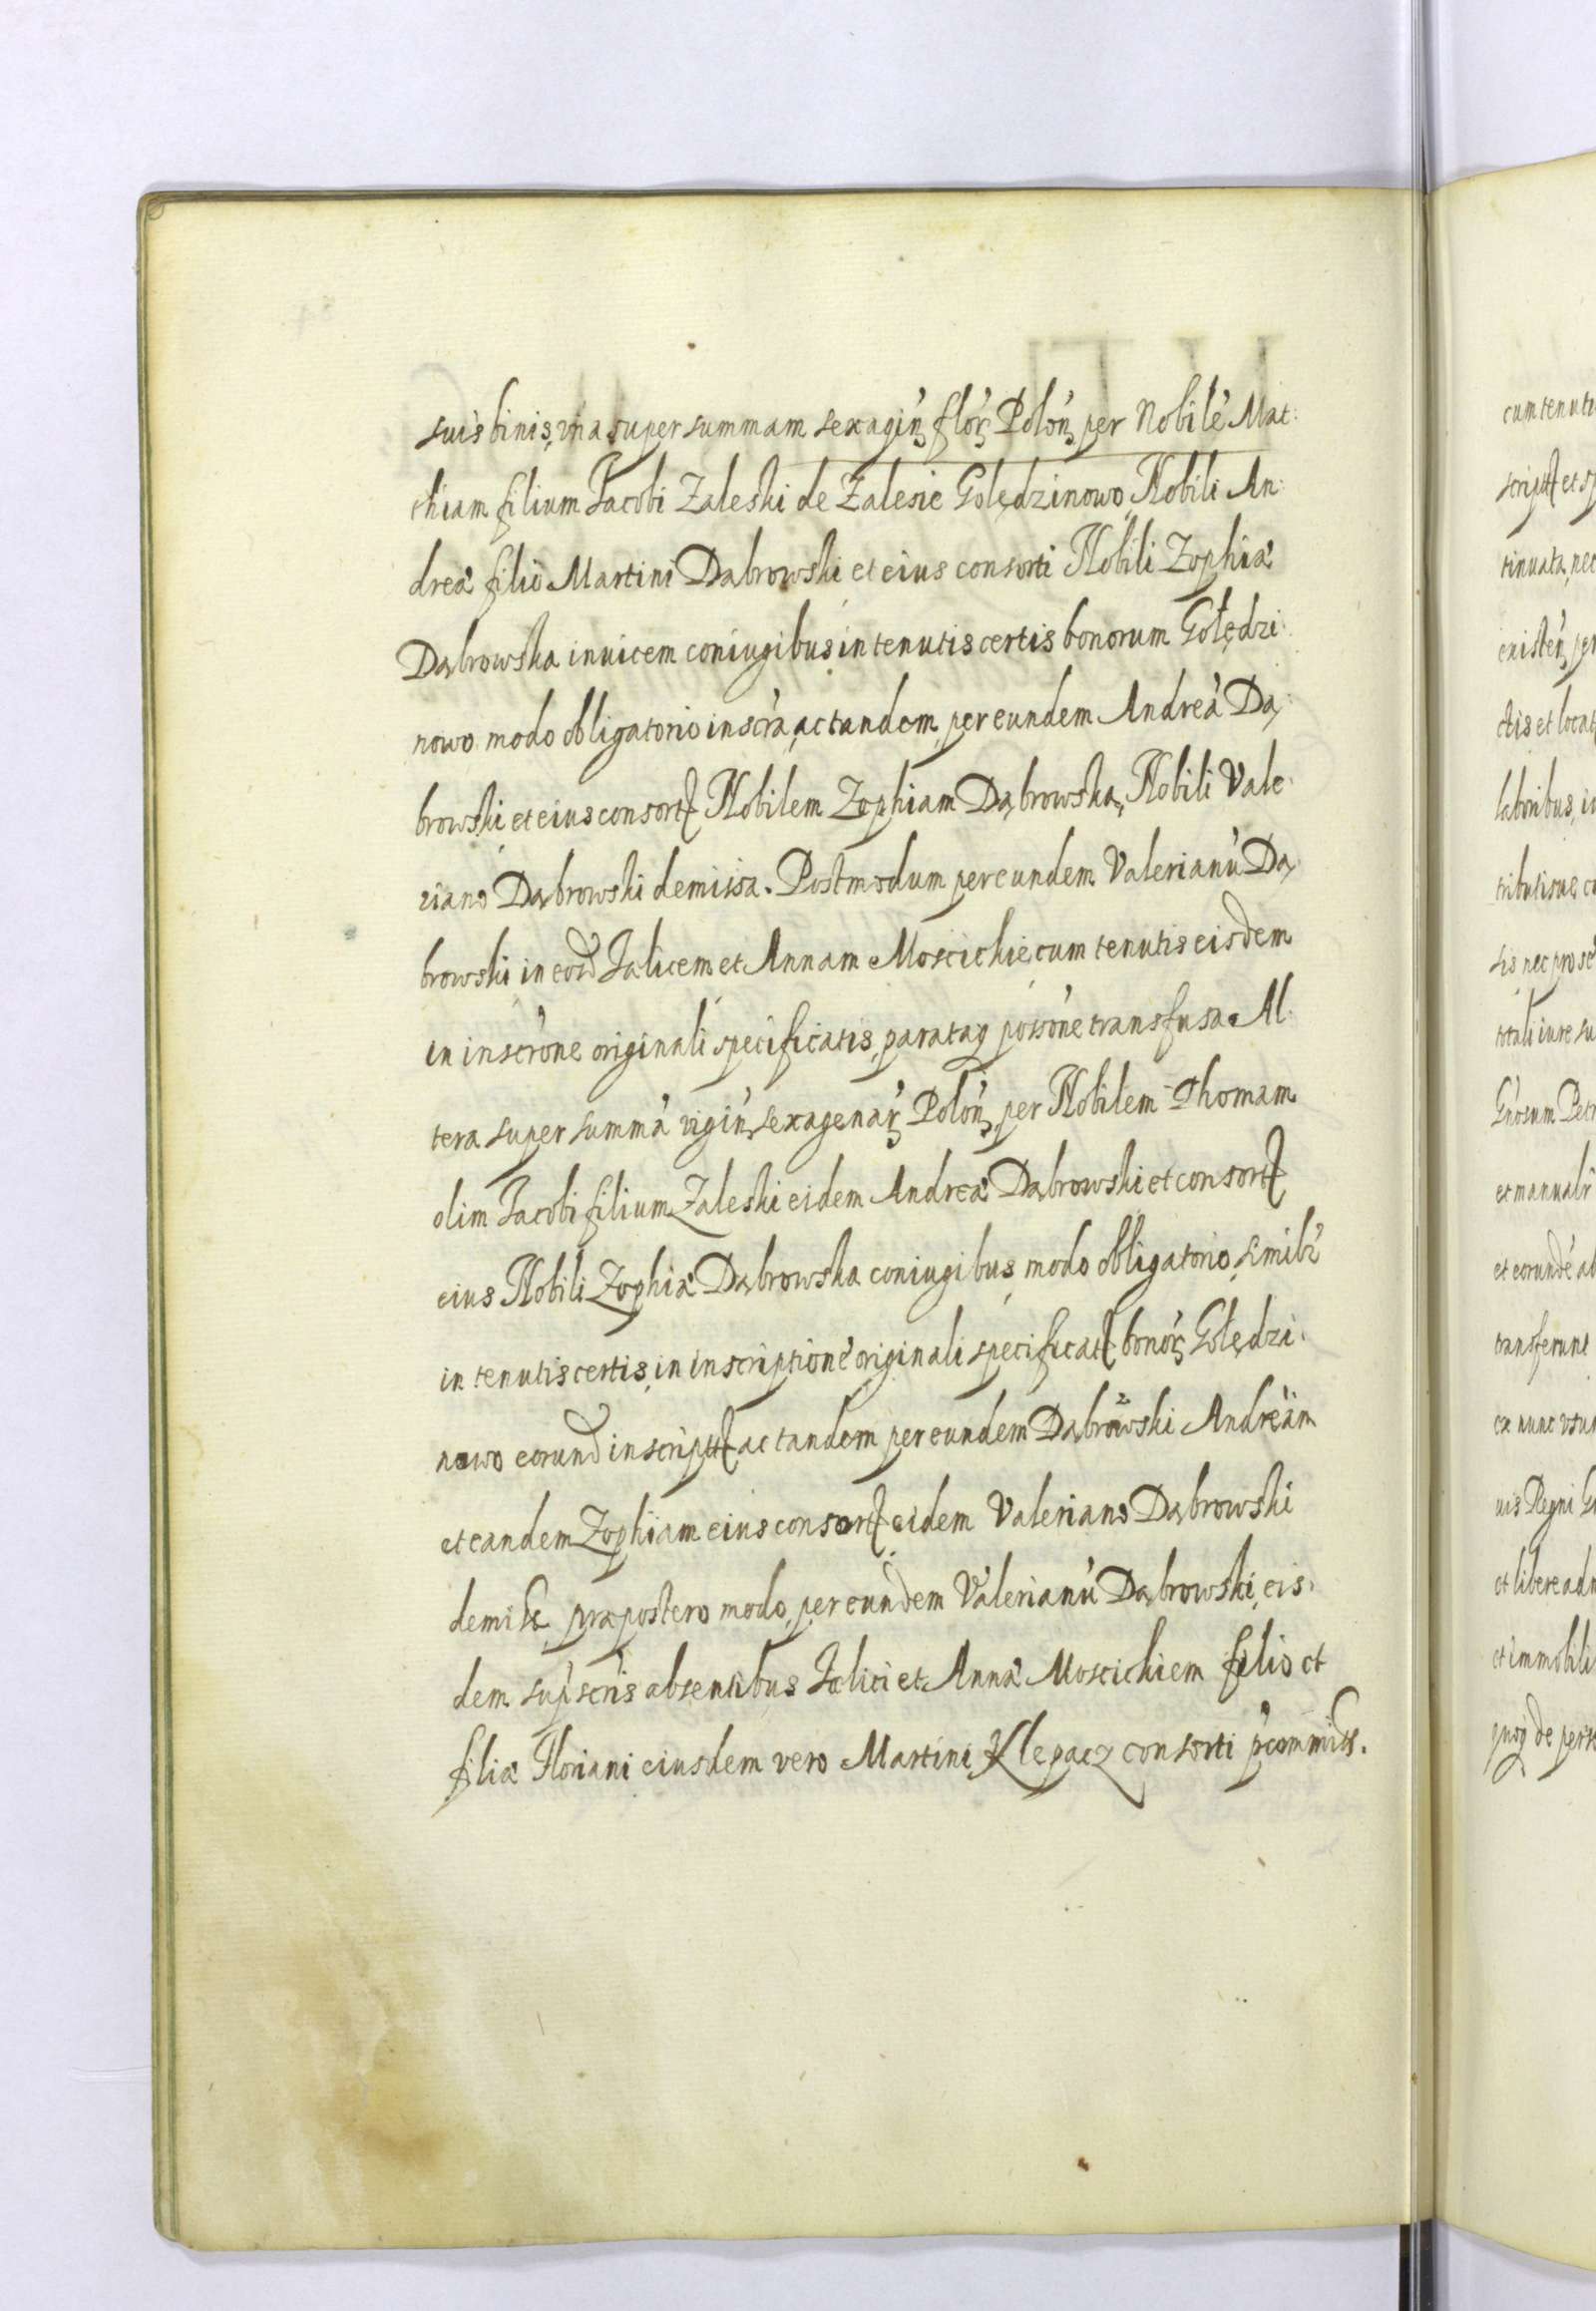 suis binis, vna super summam sexagin̉ flor̉ Polon̉ per Nobile᷈ Mat:
thiam filium Jacobi Zaleski de Zalesie Golędzinowo Nobili An:
dreæ filio Martini Dąbrowski et eius consorti Nobili Zophiæ
Dąbrowska inuicem coniugibus in tenutis certis bonorum Golędzi:
nowo modo obligatorio inscra, ac tandem per eundem Andreā Dą:
browski et eius consort Nobilem Zophiam Dąbrowska, Nobili Vale:
riano Dąbrowski demissa. Postmodum per eundem Valerianū Dą
browski in eosd Falicem et Annam Moscichie cum tenutis eisdem
in inscrone originali specificatis, parataq possone transfusa. Al:
tera super summā vigin̉ sexagenar̉ Polon̉ per Nobilem Thomam
olim Jacobi filium Zaleski eidem Andreæ Dąbrowski et consort
eius Nobili Zophiæ Dąbrowska coniugibus modo obligatorio, simil᷈r
in tenutis certis, in inscriptione originali specificat bonor̉ Golędzi:
nowo eorund inscript ac tandem per eundem Dąbrowski Andream
et eandem Zophiam eius consort eidem Valeriano Dąbrowski
demiss, præpostero modo, per eundem Valerianū Dąbrowski, eis:
dem supscris absentibus Falici et Annæ Moscichiem filio et
filiæ Floriani eiusdem vero Martini Klepacz consorti pcommiss.
cum tenuti
script et sp
tinuata, nec
existen̉ per
ctis et locat
laboribus, in
tributisue c
sis nec pro se
totali iure su
Gnosum Petr
et manualr
et eorundē ad
transferunt
ex nunc vsur
uis Regni G
et libere adm
et immobili
quoq de pers